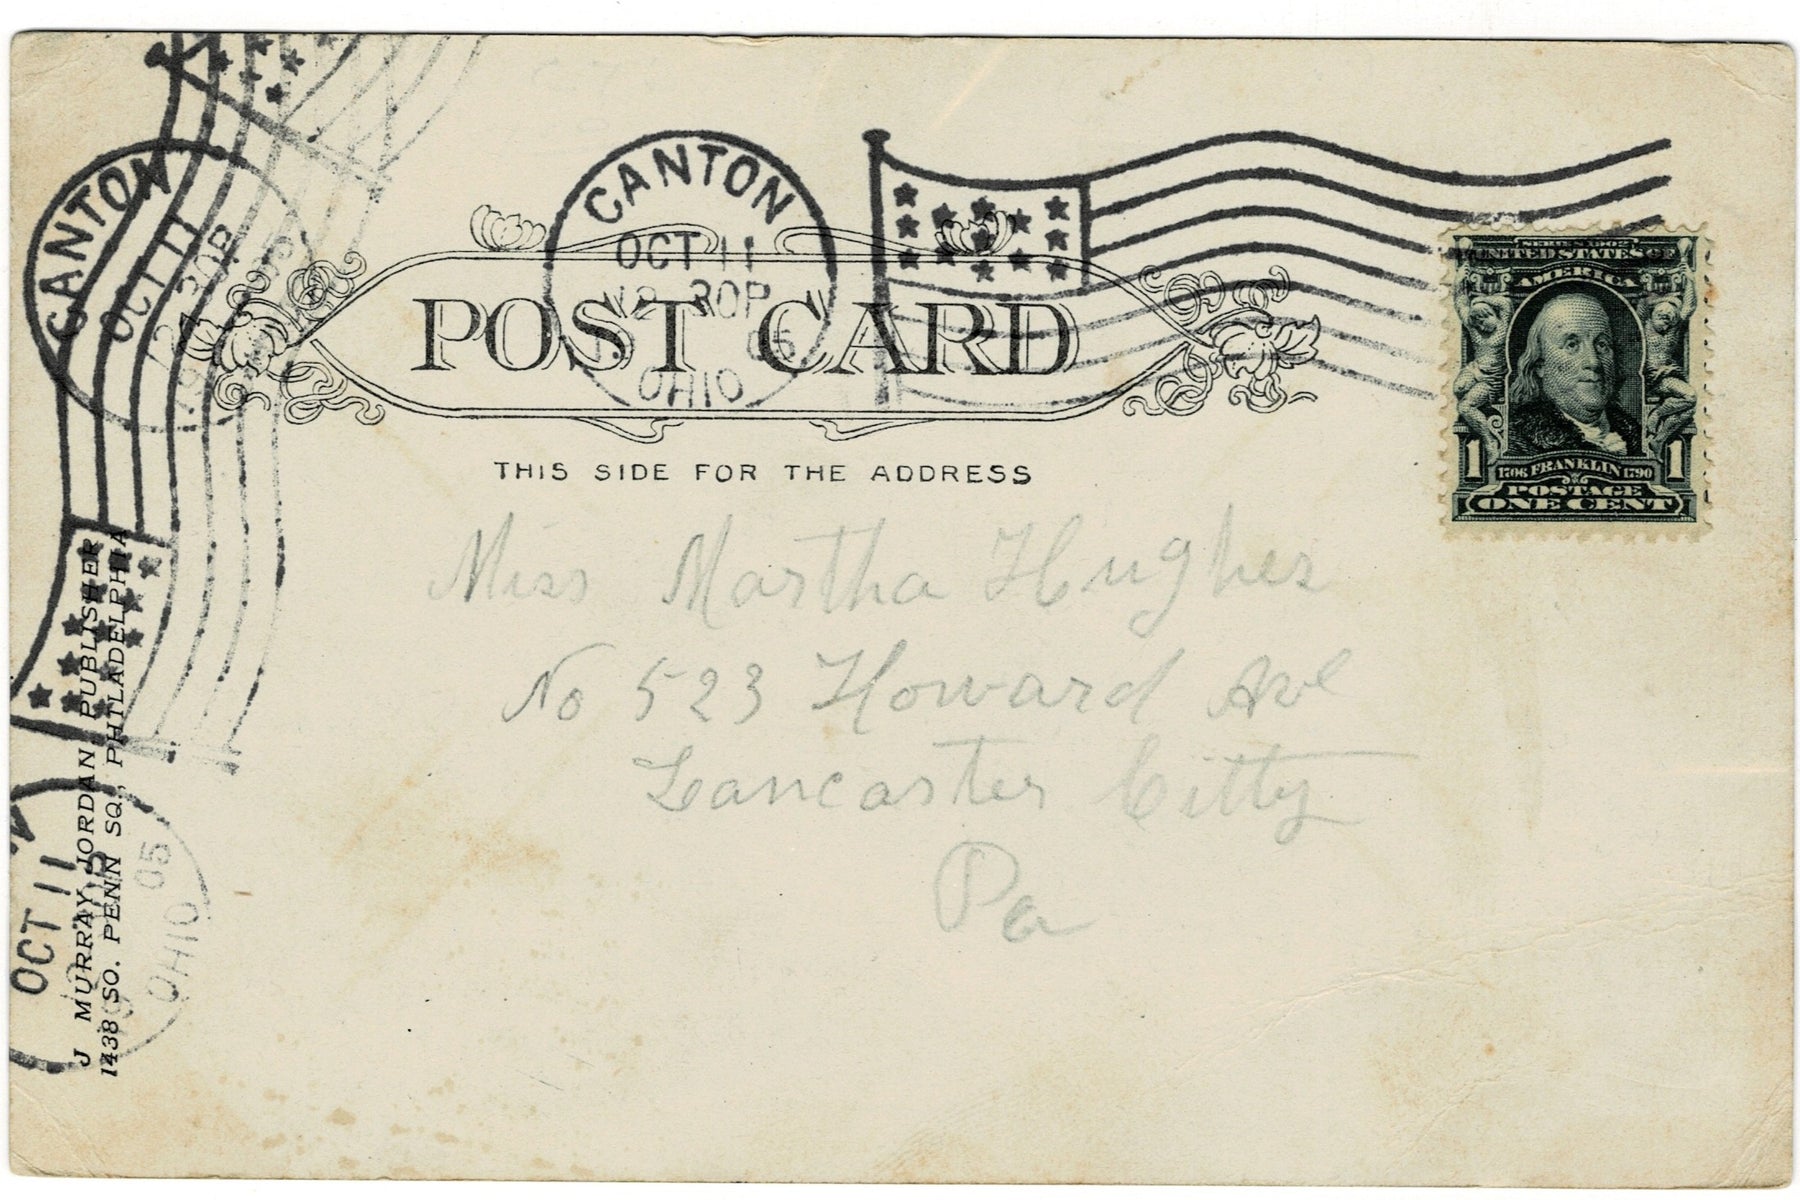 CANTON
OCT 11
12 30P
05
OHIO
POST CARD
THIS SIDE FOR THE ADDRESS
SERIES 1902
UNITED STATES OF
AMERICA
1 1
1706 FRANKLIN 1790
POSTAGE
ONE CENT
Miss Martha Hughes
No 523 Howard Ave
Lancaster Citty
Pa
CANTON
OCT 11
12 30P
OCT 11
05
OHIO
J MURRAY JORDAN PUBLISHER
1438 SO. PENN SQ., PHILADELPHIA